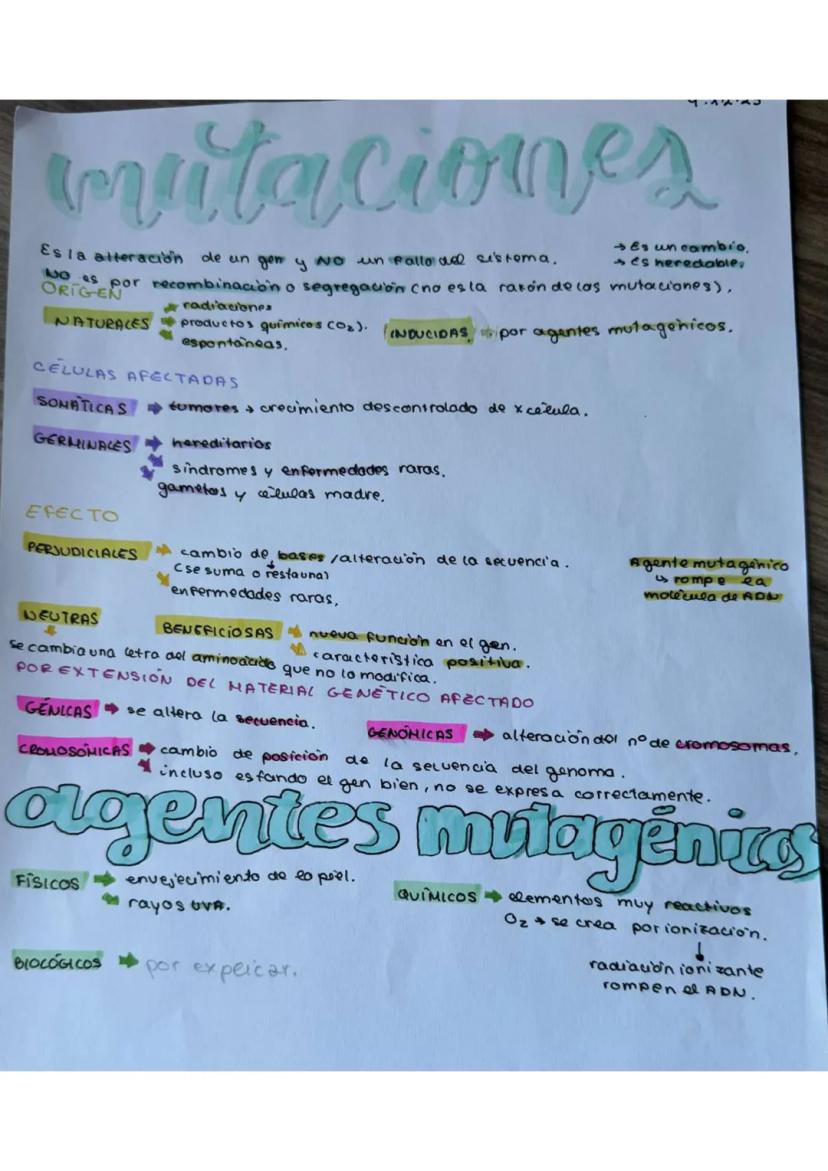 mutaciones
Es la alteración de un gen y NO un fallo del sistema.
→ Es un cambio.
→ es heredable.
NO es por recombinación o segregación (no es la razón de las mutaciones).
ORÍGEN
NATURALES → radiaciones
→ productos químicos (O₂).
→ espontáneas.
INDUCIDAS → por agentes mutagénicos.
CÉLULAS AFECTADAS
SOMÁTICAS → tumores → crecimiento descontrolado de x célula.
GERMINALES → hereditarios
→ síndromes y enfermedades raras.
gametos y células madre.
EFECTO
PERJUDICIALES → cambio de bases / alteración de la secuencia.
(se suma o resta una)
→ enfermedades raras.
Agente mutagénico
↳ rompe la
molécula de ADN
NEUTRAS
BENEFICIOSAS → nueva función en el gen.
→ característica positiva.
se cambia una letra del aminoácido que no lo modifica.
POR EXTENSIÓN DEL MATERIAL GENÉTICO AFECTADO
GÉNICAS → se altera la secuencia.
GENÓMICAS → alteración del nº de cromosomas.
CROMOSÓMICAS → cambio de posición de la secuencia del genoma.
→ incluso estando el gen bien, no se expresa correctamente.
agentes mutagénicos
FÍSICOS → envejecimiento de la piel.
→ rayos UVA.
QUÍMICOS → elementos muy reactivos
O₂ → se crea por ionización.
↓
radiación ionizante
rompen el ADN.
BIOLÓGICOS → por explicar.